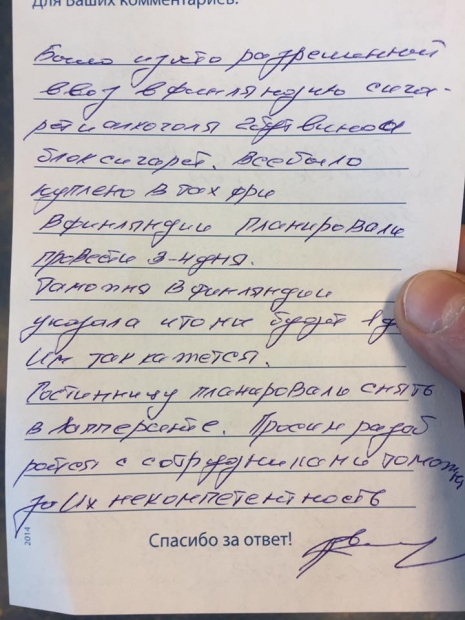 Для Ваших комментариев:
Было изято разрешенной
ввоз в финляндию сига-
рет и алкоголя вина
блок сигарет. Все было
куплено в тах фри
В финляндии планировали
провести 3-4 дня.
Таможня в финляндии
указала что мы будем 1 д
Им так кажется.
Гостинницу планировали снять
в Лапперанте. Просим разоб
раться с сотрудниками таможни
за их некомпетентность
2014
Спасибо за ответ!